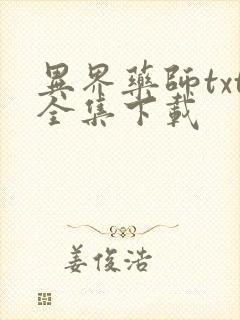 異界藥師txt
全集下載
姜俊浩